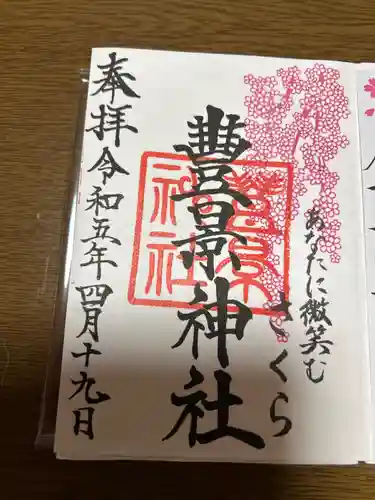 あなたに微笑む
さくら
豊景神社
豊景神社
奉拝令和五年四月十九日